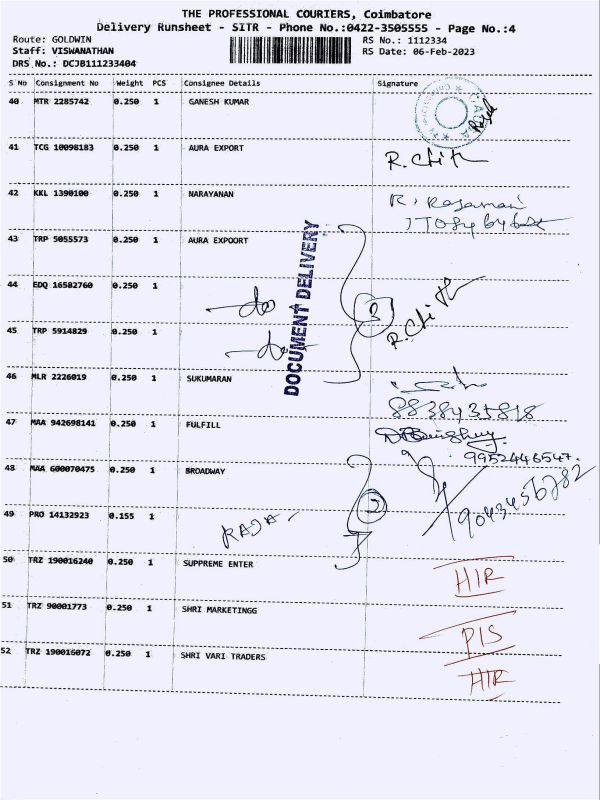 THE PROFESSIONAL COURIERS, Coimbatore
Delivery Runsheet - SITR - Phone No.:0422-3505555 - Page No.:4
Route: GOLDWIN
RS No.: 1112334
Staff: VISWANATHAN
RS Date: 06-Feb-2023
DRS No.: DCJB111233404
S No Consignment No Weight PCS Consignee Details Signature
40 MTR 2285742 0.250 1 GANESH KUMAR
41 TCG 10098183 0.250 1 AURA EXPORT
R. Chith
42 KKL 1390100 0.250 1 NARAYANAN
R. Rasamani
43 TRP 5055573 0.250 1 AURA EXPOORT
DOCUMENT DELIVERY
44 EDQ 16582760 0.250 1
do
3
R. Chith
45 TRP 5914829 0.250 1
do
46 MLR 2226019 0.250 1 SUKUMARAN
8838435818
47 MAA 942698141 0.250 1 FULFILL
9952446547
48 MAA 600070475 0.250 1 BROADWAY
9043456782
49 PRO 14132923 0.155 1
RAJA
50 TRZ 190016240 0.250 1 SUPPREME ENTER
HIR
51 TRZ 90001773 0.250 1 SHRI MARKETINGG
PIS
52 TRZ 190016072 0.250 1 SHRI VARI TRADERS
HIR